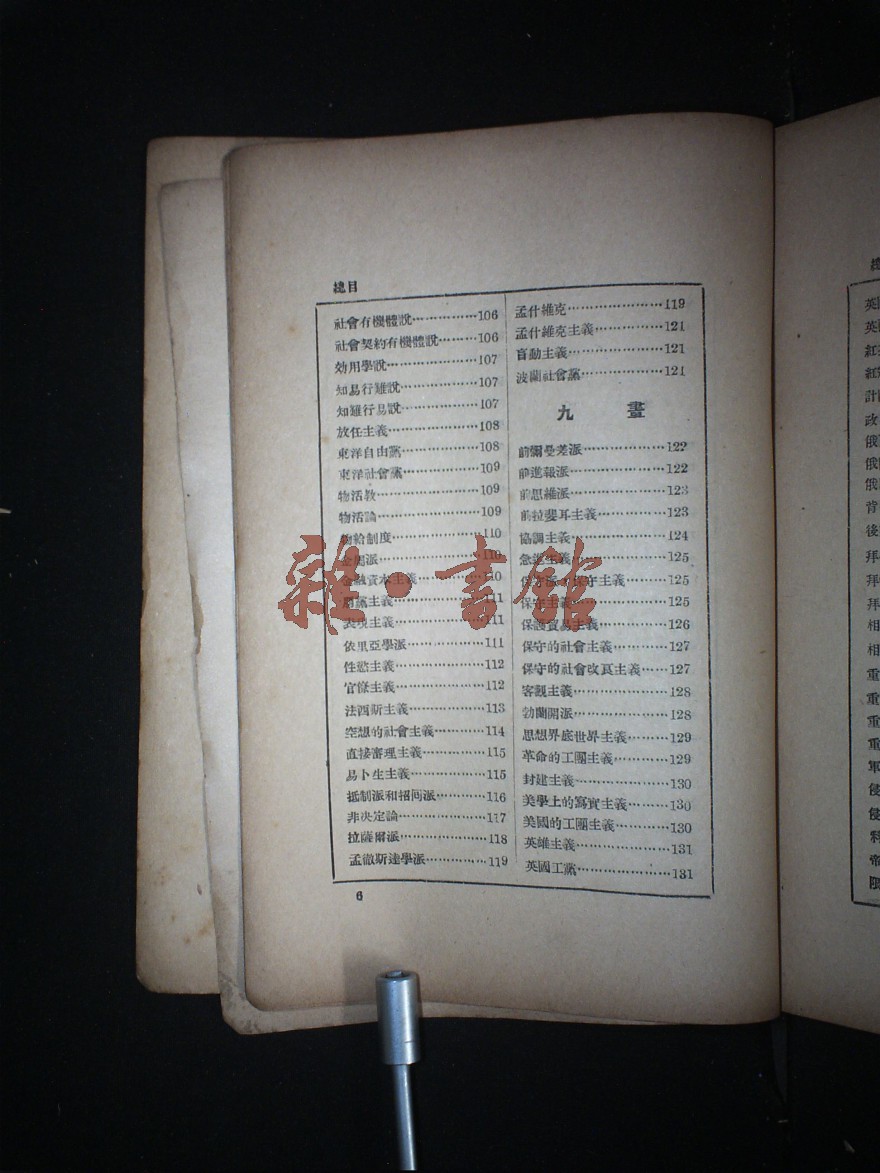 總目
社會有機體說……………106
社會契約有機體說………106
効用學說…………………107
知易行難說………………107
知難行易說………………107
放任主義…………………108
東洋自由黨………………108
東洋社會黨………………109
物活教……………………109
物活論……………………109
物給制度…………………110
110
金融資本主義……………110
111
表現主義…………………111
依里亞學派………………111
性慾主義…………………112
官僚主義…………………112
法西斯主義………………113
空想的社會主義…………114
直接審理主義……………115
易卜生主義………………115
抵制派和招回派…………116
非決定論…………………117
拉薩爾派…………………118
孟徹斯達學派……………119
孟什維克…………………119
孟什維克主義……………121
盲動主義…………………121
波蘭社會黨………………121
九 畫
前爾曼差派………………122
前進報派…………………122
前思維派…………………123
前拉斐耳主義……………123
協調主義…………………124
急進主義…………………125
保守派·保守主義………125
保守主義…………………125
保護貿易主義……………126
保守的社會主義…………127
保守的社會改良主義……127
客觀主義…………………128
勃蘭開派…………………128
思想界底世界主義………129
革命的工團主義…………129
封建主義…………………130
美學上的寫實主義………130
美國的工團主義…………130
英雄主義…………………131
英國工黨…………………131
6
雜·書館
總
英國
英
紅
紅
計
政
俄
俄
俄
背
後
拜
拜
拜
相
相
重
重
重
軍
侵
侵
帝